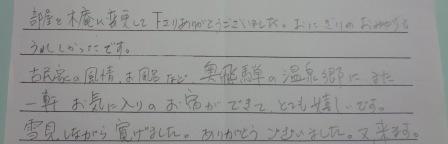 部屋を木庵に変更して下さりありがとうございました。おにぎりのおみやげも
うれしかったです。
古民家の風情、お風呂など、奥飛騨の温泉郷にまた
一軒 お気に入りのお宿ができて、とても嬉しいです。
雪見しながら寛げました。ありがとうございました。又来ます。